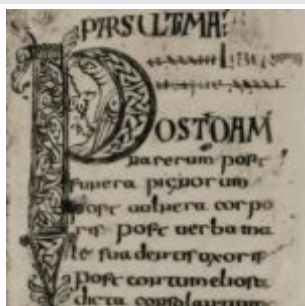 PARS ULTIMA:
POSTOAM
narerum post
funera pignorum
post uolnera corpo
ris post uerba ma
le suadentis uxoris
post contumeliosa
dicta consolantium